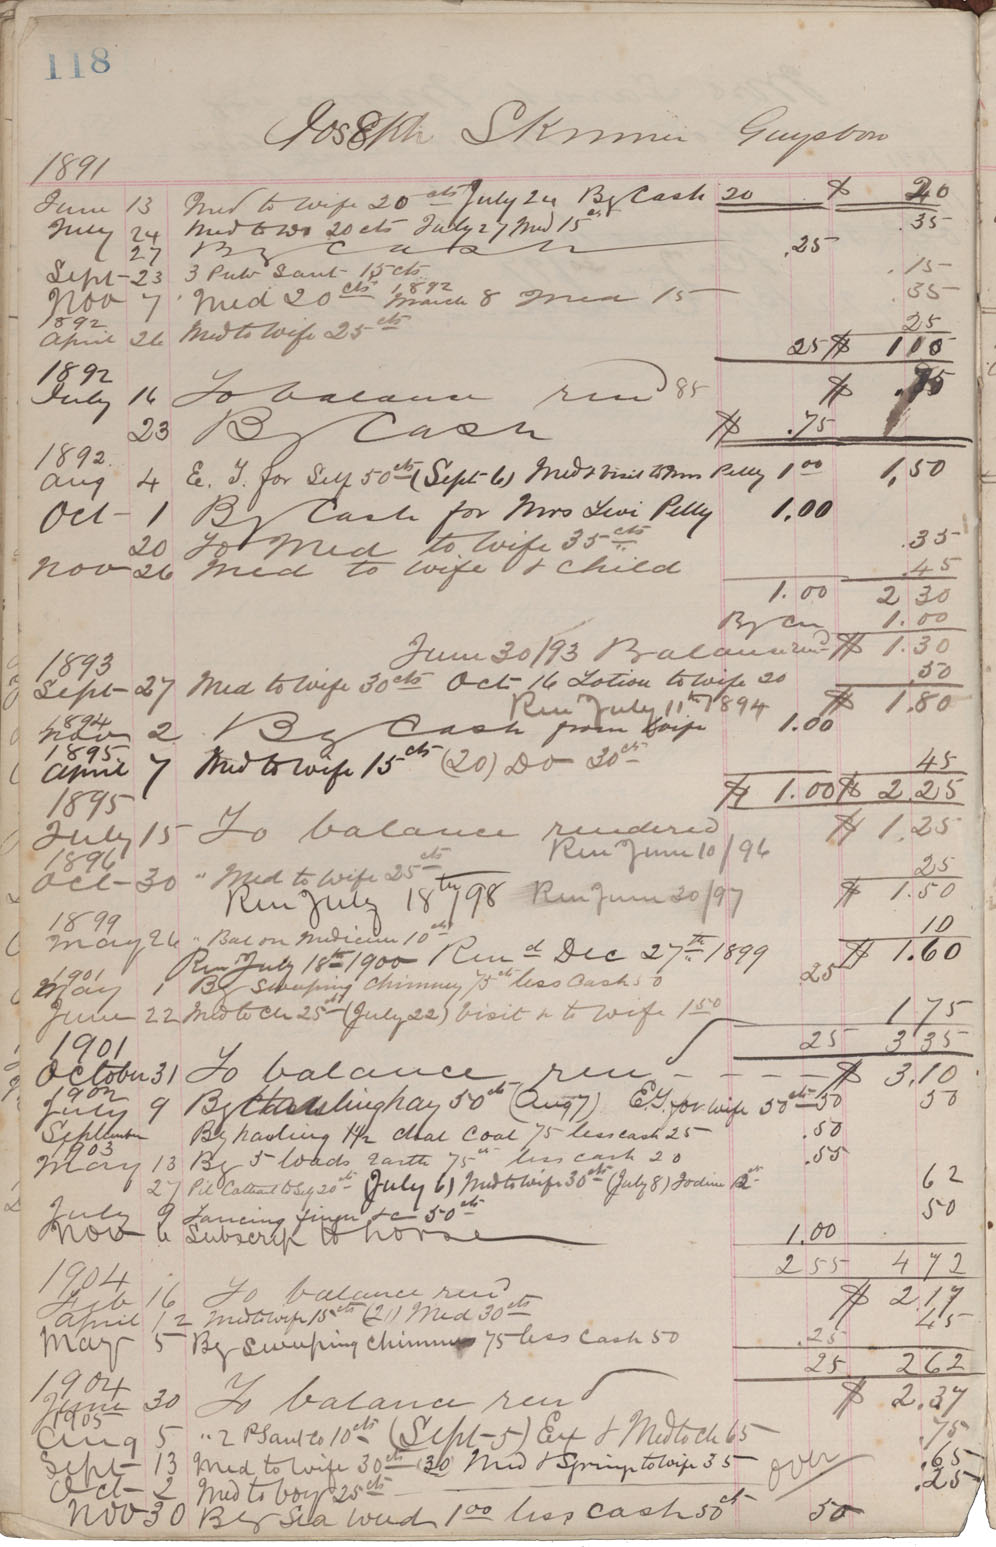 118
Joseph Skinner Guysboro
1891
June 13 Med to wife 20 cts July 24 By Cash 20 $ 20
July 24 Med to Do 20 cts July 27 Med 15 cts .35
27 By Cash .25
Sept 23 3 Pulv Sant 15 cts .15
Nov 7 Med 20 cts 1892 March 8 Med 15 .35
1892
April 26 Med to Wife 25 cts 25
25 $ 1 10
1892
July 16 To balance rend 85 $
23 By Cash $ .75
1892
Aug 4 E. T. for Self 50 cts (Sept 6) Med & Visit to Mrs Pelly 1 00 1,50
Oct 1 By Cash for Mrs Levi Pelly 1.00
20 To Med to wife 35 cts .35
Nov 26 Med to wife & child .45
1.00 2 30
By 1.00
June 30/93 Balance rend $ 1.30
1893
Sept 27 Med to wife 30 cts Oct 16 Lotion to wife 20 .50
Ren July 11th 1894 $ 1.80
1894
Nov 2 By Cash from wife 1.00
1895
April 7 Med to wife 15 cts (20) Do 30 cts 45
$ 1.00 $ 2.25
1895
July 15 To balance rendered $ 1.25
Ren June 10/96
1896
Oct 30 " Med to wife 25 cts 25
Ren July 18th/98 Ren June 30/97 $ 1.50
1899
May 26 " Bal on Medicine 10 cts 10
Ren July 18th 1900 Ren d Dec 27th 1899 $ 1.60
1901
May 1 By Sweeping chimney 75 cts less Cash 50 25
June 22 Med to Ch 25 cts (July 22) Visit to wife 1 50 1 75
25 3 35
1901
October 31 To balance ren - - - - $ 3,10
1902
July 9 By hauling hay 50 cts (Aug 7) E.T. for wife 50 cts 50 50
September By hauling 1 1/2 chal Coal 75 less cash 25 .50
1903
May 13 By 5 loads Earth 75 cts less cash 20 .55
27 Pil Cathart to Self 20 cts (July 6) Med to wife 30 cts (July 8) Iodine 12 cts 62
July 9 Lancing finger &c 50 cts 50
Nov 6 Subscrip to horse 1.00
2 55 4 72
1904
Feb 16 To balance rend $ 2.17
April 12 Med to wife 15 cts (21) Med 30 cts 45
May 5 By Sweeping chimney 75 less cash 50 .25
25 2 62
1904
June 30 To balance rend $ 2.37
1905
Aug 5 " 2 P Sant Co 10 cts (Sept 5) Ext & Med to ch 65 .75
Sept 13 Med to wife 30 cts (30 Med & Syringe to wife 35 .65
Oct 2 Med to boy 25 cts over .25
Nov 30 By Sea weed 1 00 less cash 50 cts 50